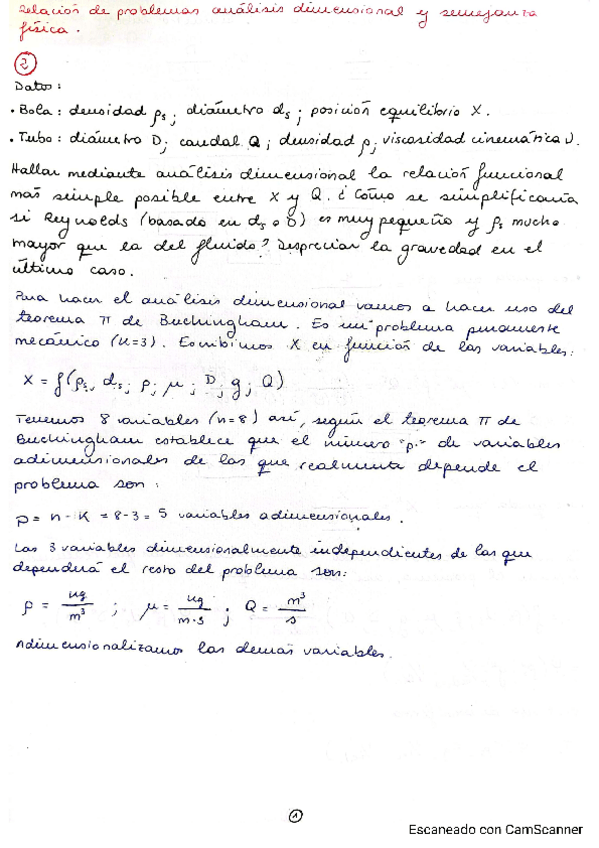 Relación de problemas análisis dimensional y semejanza
física.
2
Datos:
• Bola: densidad ρs; diámetro ds; posición equilibrio X.
• Tubo: diámetro D; caudal Q; densidad ρ; viscosidad cinemática ν.
Hallar mediante análisis dimensional la relación funcional
más simple posible entre X y Q. ¿Cómo se simplificaría
si Reynolds (basado en ds o D) es muy pequeño y ρs mucho
mayor que la del fluido? Despreciar la gravedad en el
último caso.
Para hacer el análisis dimensional vamos a hacer uso del
teorema π de Buckingham. Es un problema puramente
mecánico (k=3). Escribimos X en función de las variables:
X = f(ρs, ds; ρ; μ; D; g; Q)
Tenemos 8 variables (n=8) así, según el teorema π de
Buckingham establece que el número "p" de variables
adimensionales de las que realmente depende el
problema son:
p = n - k = 8 - 3 = 5 variables adimensionales.
Las 3 variables dimensionalmente independientes de las que
dependerá el resto del problema son:
ρ = kg/m³ ; μ = kg/m·s ; Q = m³/s
Adimensionalizamos las demás variables.
1
Escaneado con CamScanner